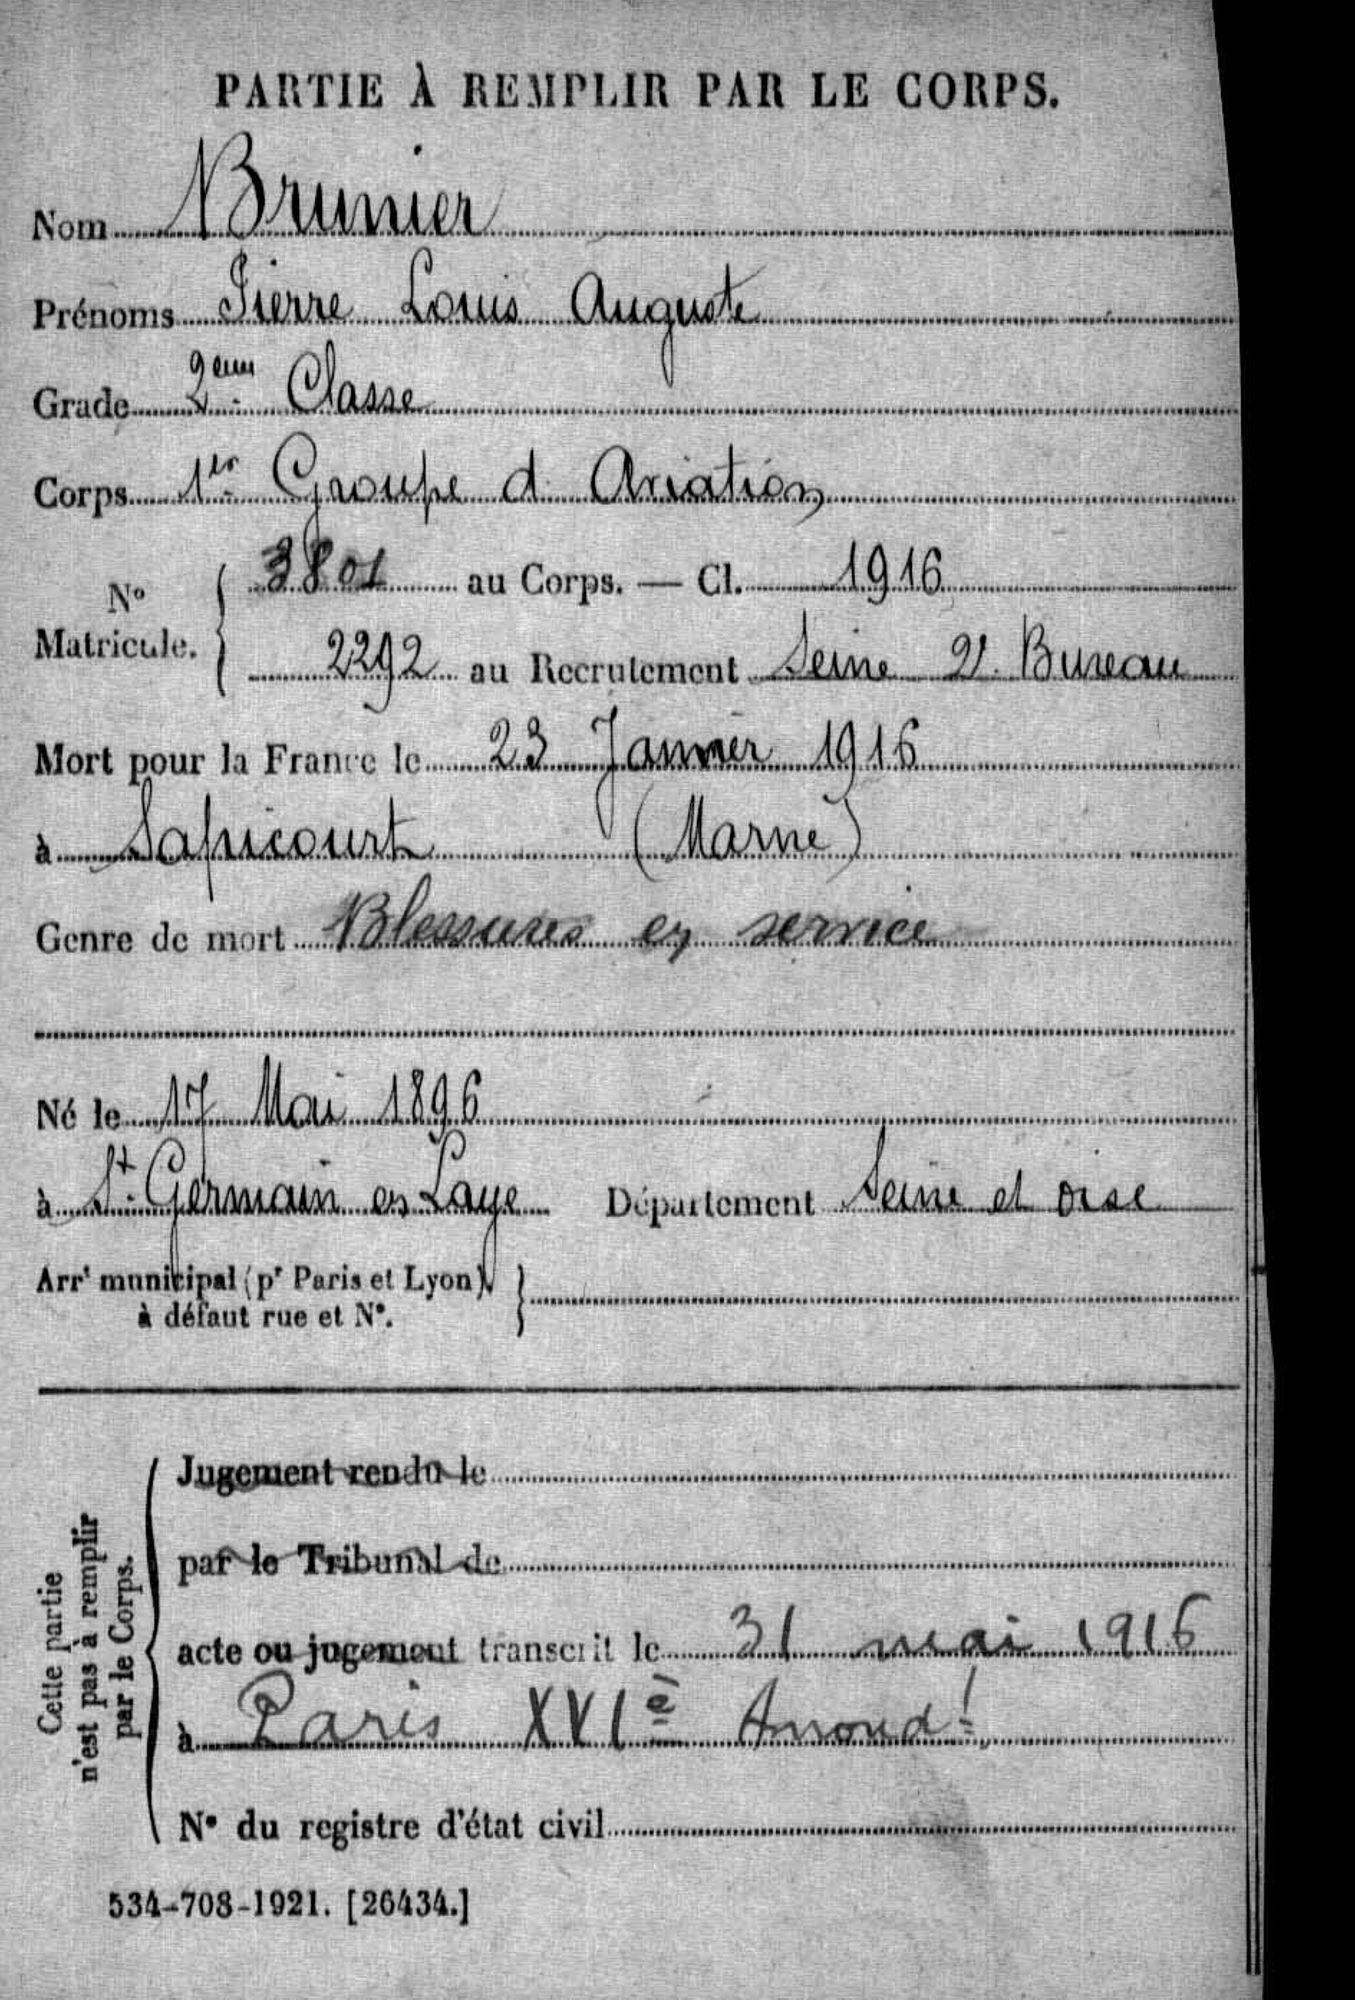 PARTIE À REMPLIR PAR LE CORPS.
Nom Brunier
Prénoms Pierre Louis Auguste
Grade 2eme Classe
Corps 1er Groupe d'Aviation
No Matricule. { 3801 au Corps. — Cl. 1916
2292 au Recrutement Seine 2e Bureau
Mort pour la France le 23 Janvier 1916
à Sapicourt (Marne)
Genre de mort Blessures en service
Né le 17 Mai 1896
à St Germain en Laye Département Seine et oise
Arrt municipal (pr Paris et Lyon), }
à défaut rue et N°.
Cette partie
n'est pas à remplir
par le Corps.
Jugement rendu le
par le Tribunal de
acte ou jugement transcrit le 31 mai 1916
à Paris XVIe Arrondt.
N° du registre d'état civil
534-708-1921. [26434.]